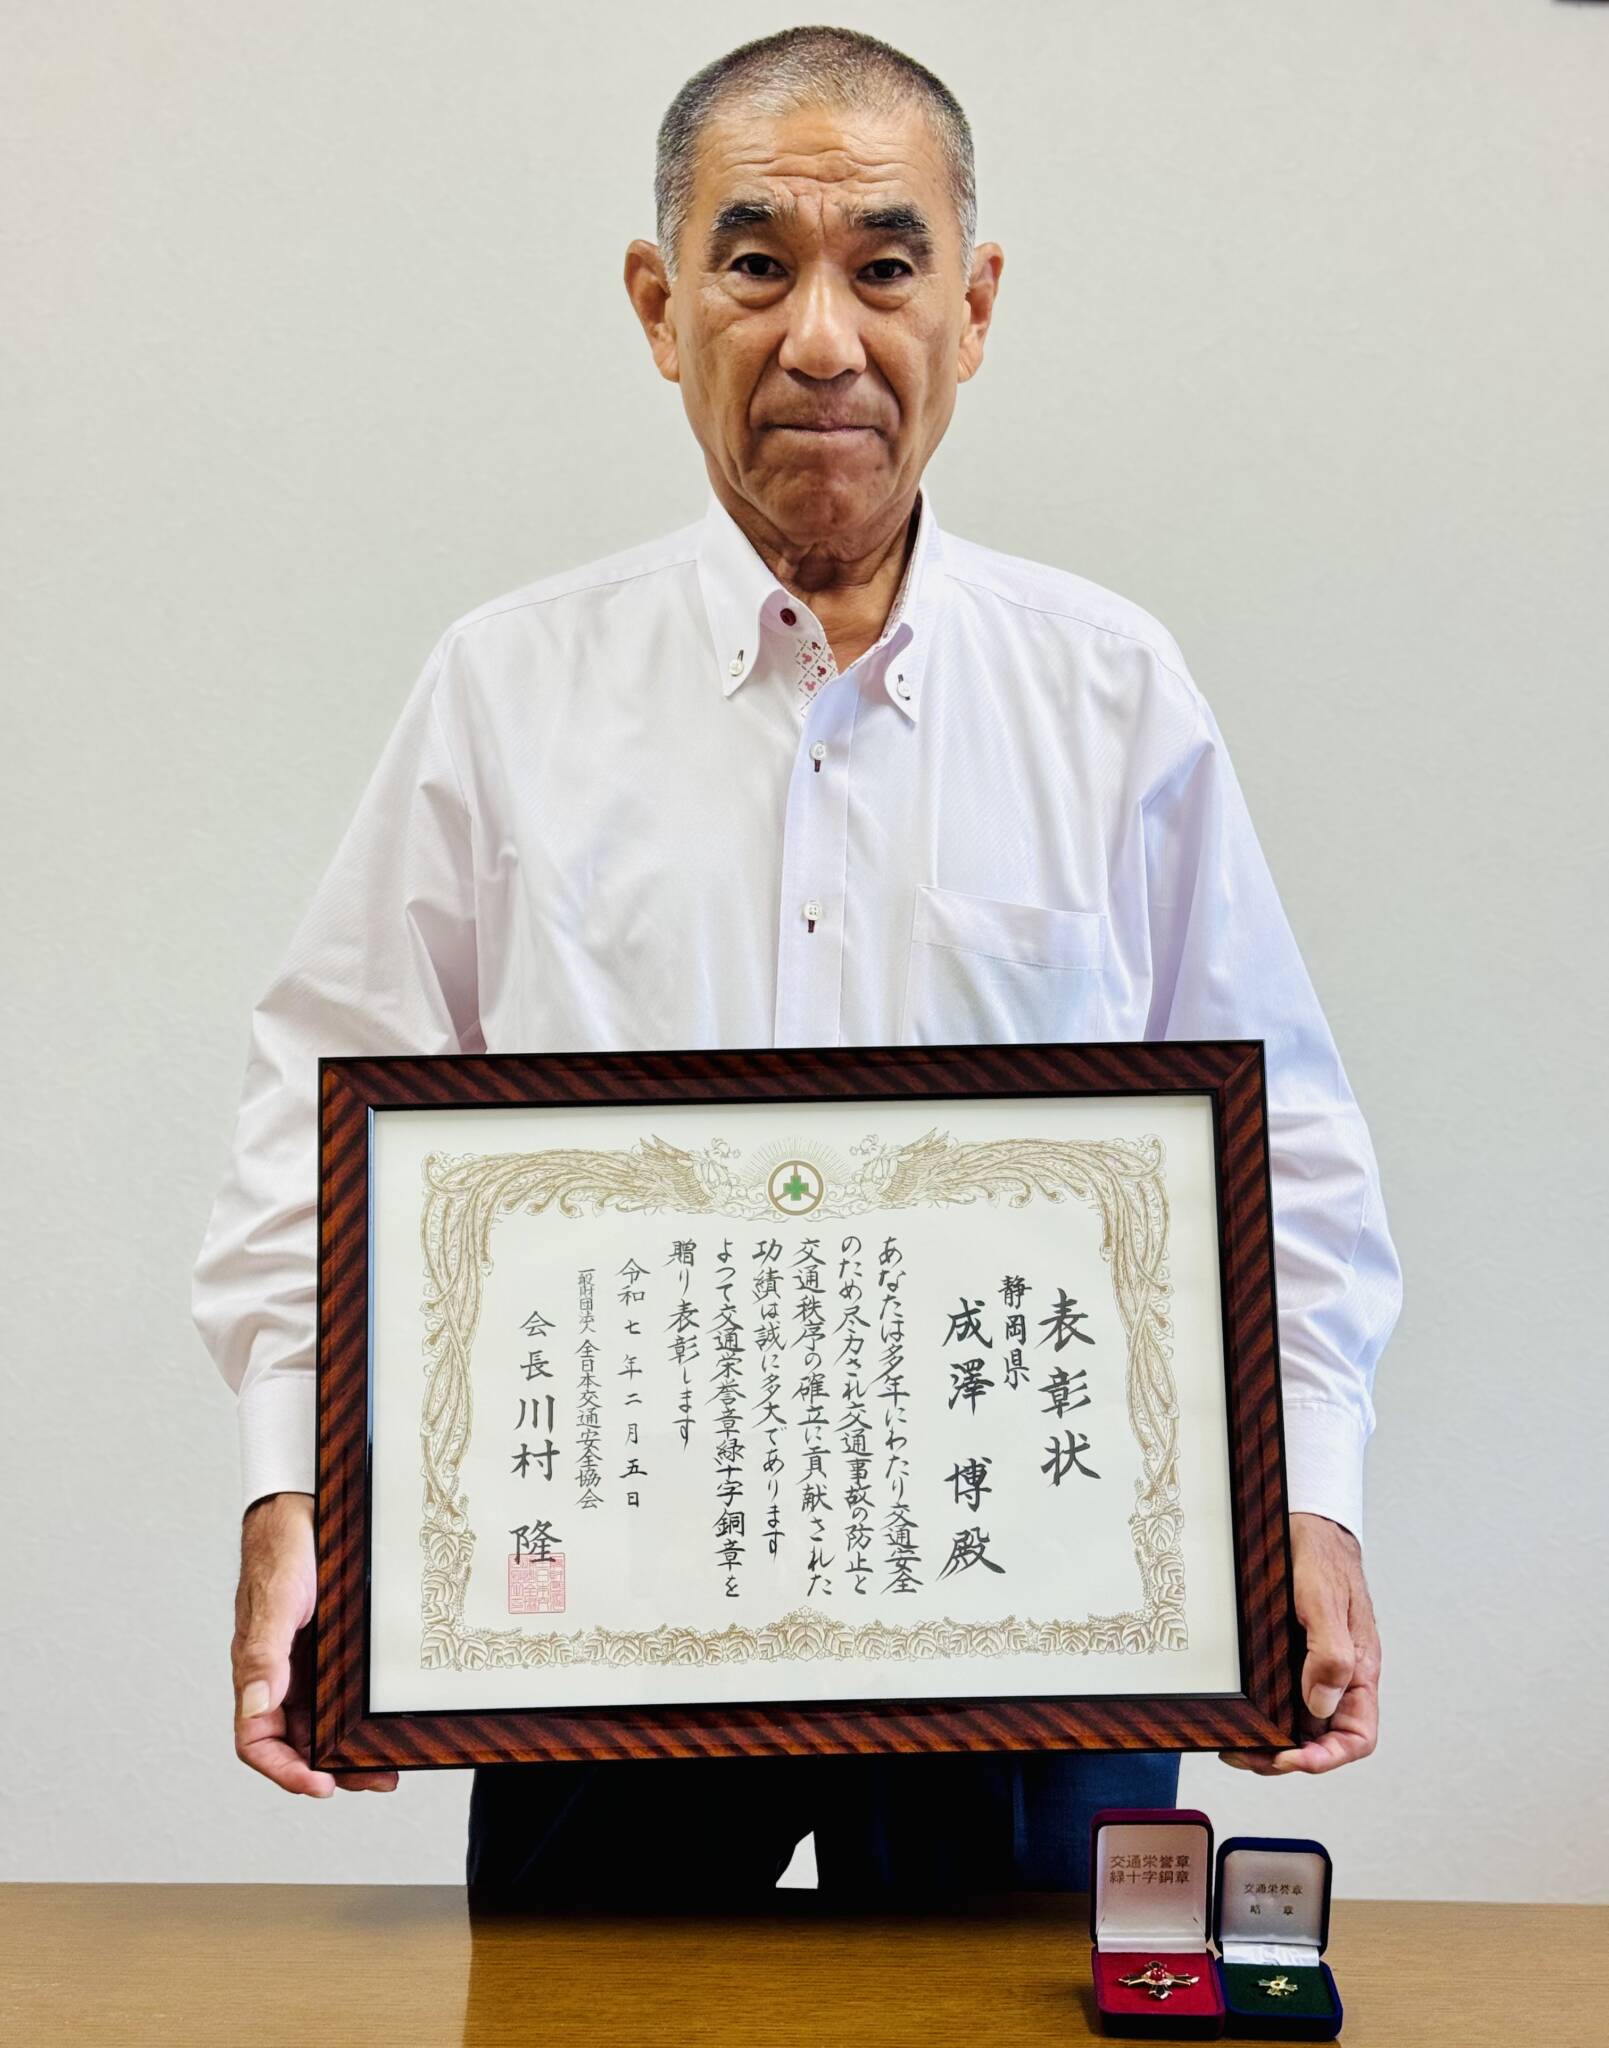 表彰状
静岡県
成澤博殿
あなたは多年にわたり交通安全
のため尽力され交通事故の防止と
交通秩序の確立に貢献された
功績は誠に多大であります
よつて交通栄誉章緑十字銅章を
贈り表彰します
令和七年二月五日
一般財団法人全日本交通安全協会
会長川村隆
交通栄誉章
緑十字銅章
交通栄誉章
略章